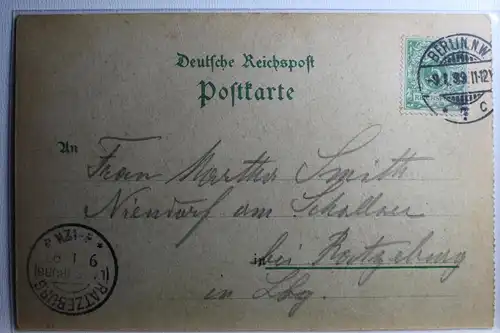 Deutsche Reichspost
Postkarte
BERLIN, N.W.
9.1.99. 11-12V
C
An
Frau Martha Smith
Niendorf am Schallsee
in bei Ratzeburg
in Lbg.
RATZEBURG
9 1